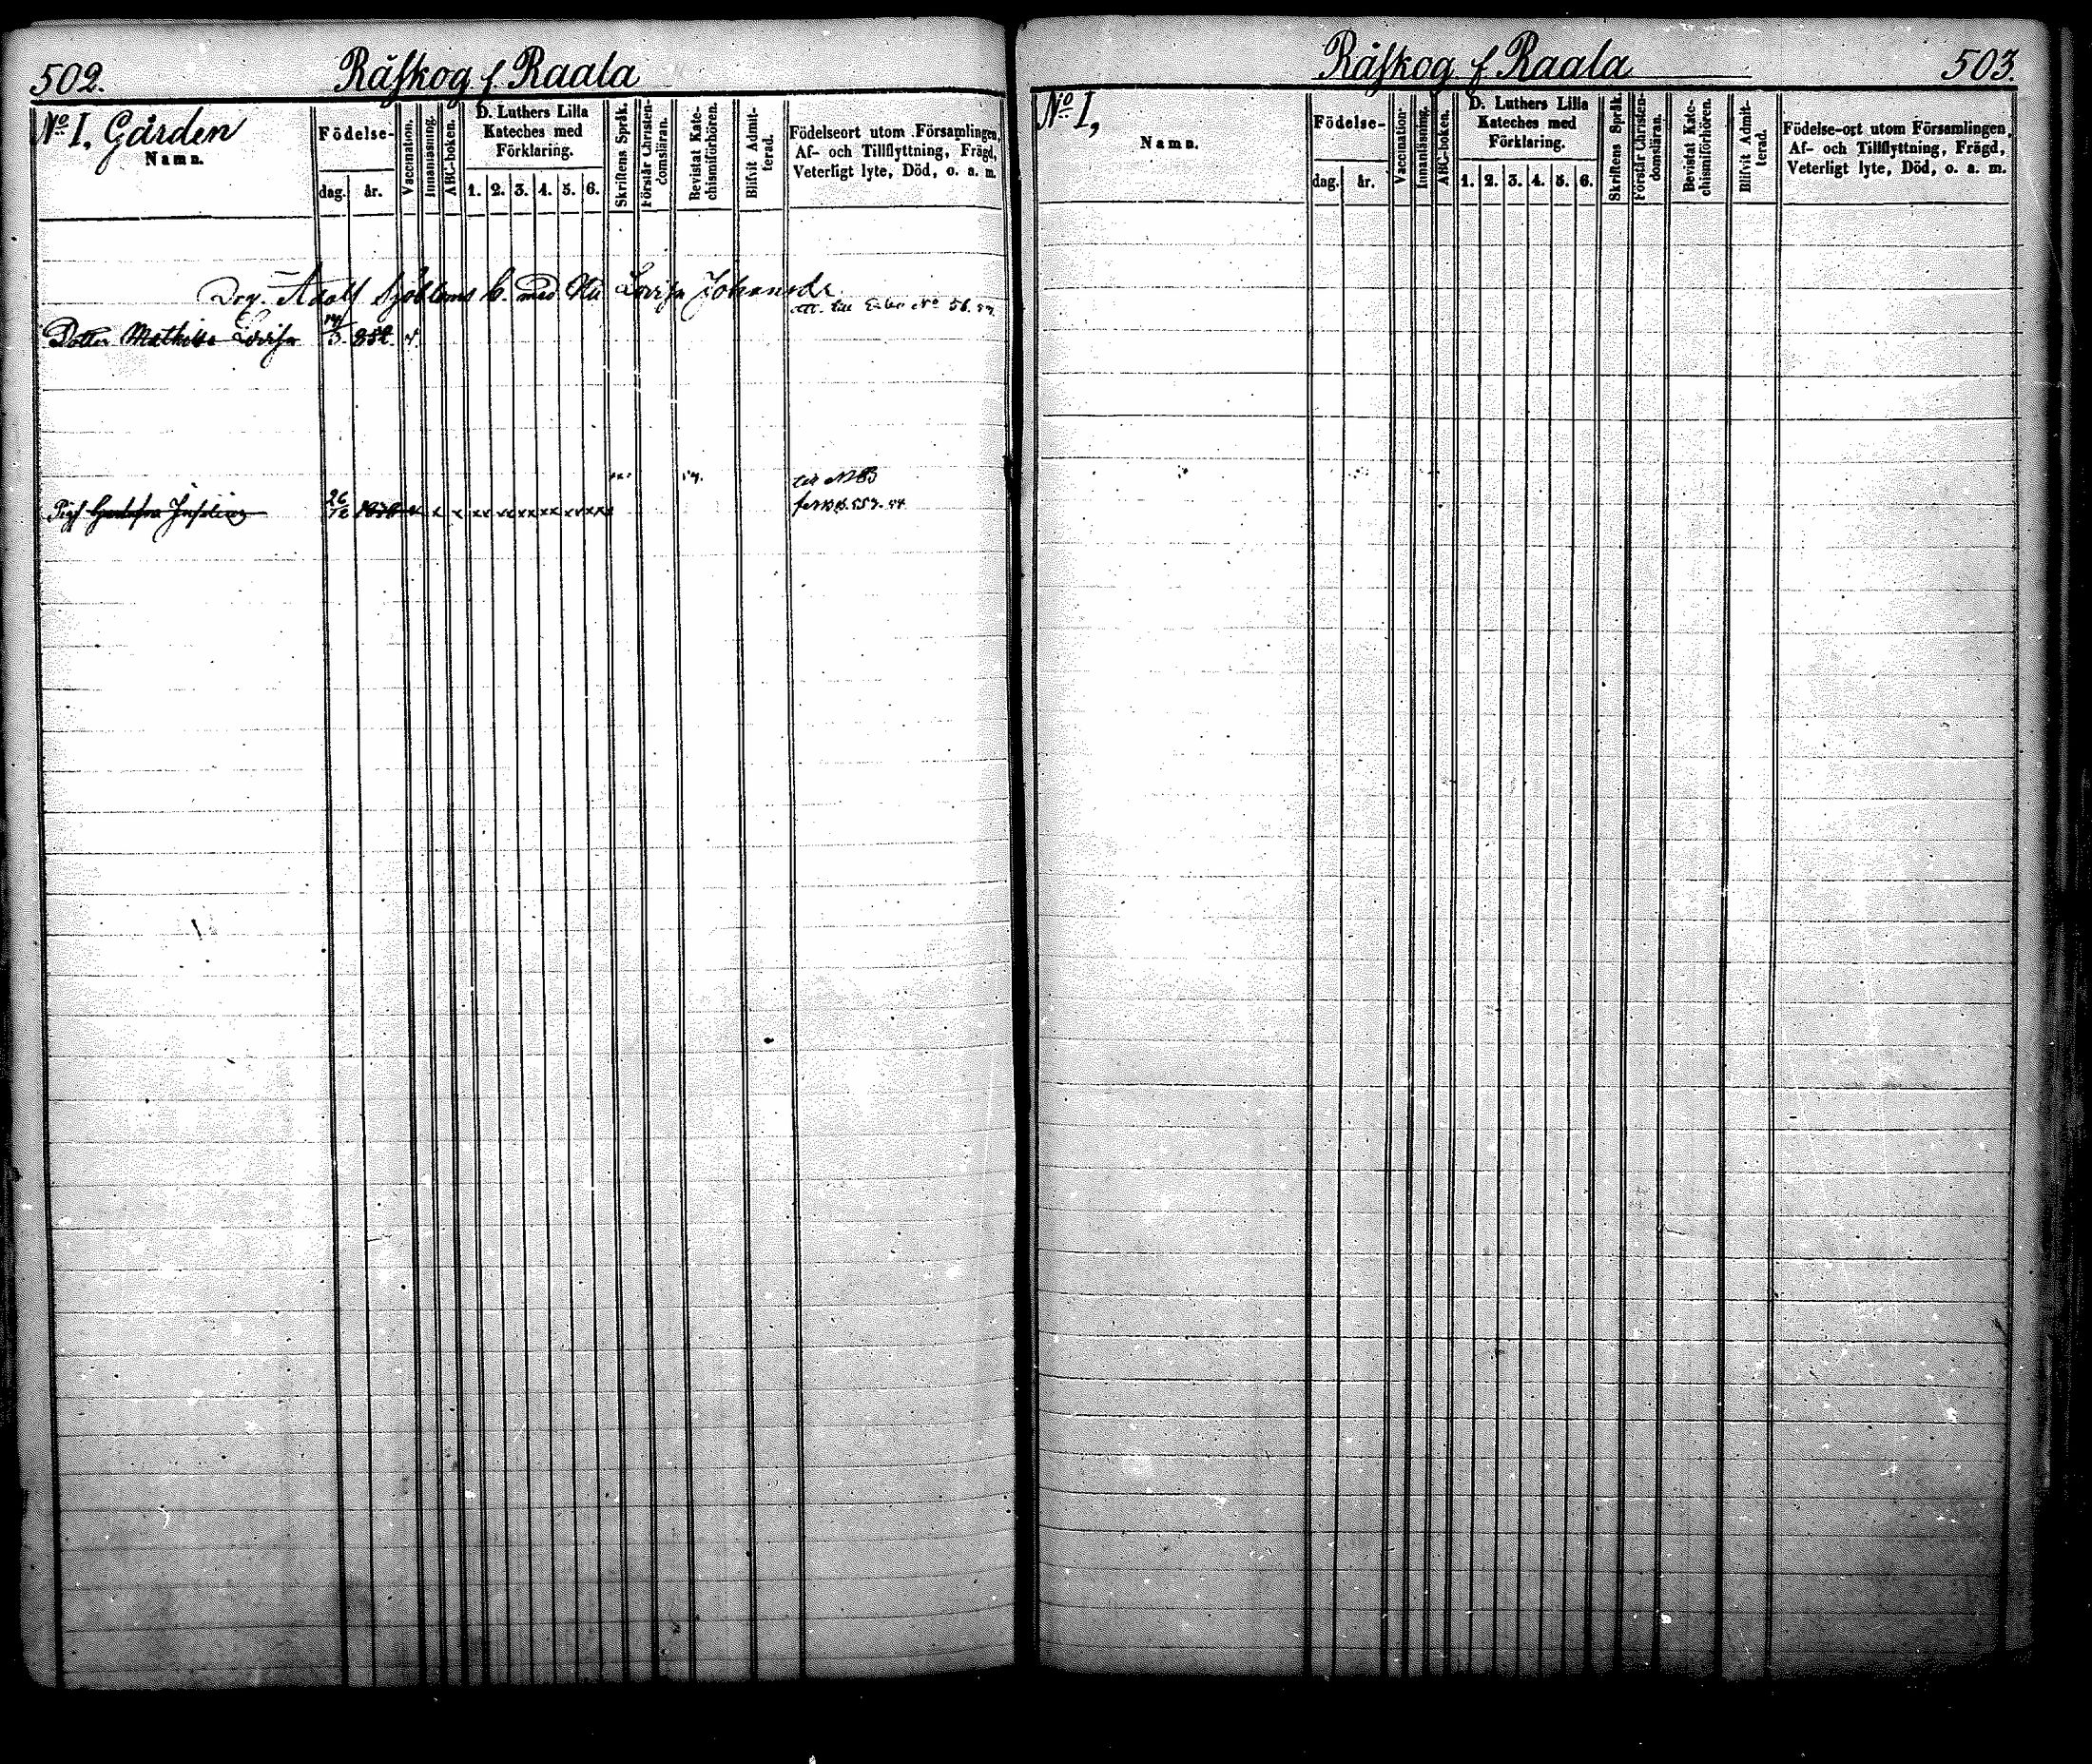 502. Råskog f Raala
No. I. Gården
Namn.
Födelse-
dag. år.
Vaccination.
Innanläsning.
ABC-boken.
D. Luthers Lilla
Kateches med
Förklaring.
1. 2. 3. 4. 5. 6.
Skriftens Språk.
Förstår Christen-
domsläran.
Bevistat Kate-
chismiförhören.
Blifvit Admit-
terad.
Födelseort utom Församlingen,
Af- och Tillflyttning, Frägd,
Veterligt lyte, Död, o. a. m.
Adolf Sjöbloms b. med Lovisa Johansdr
Dotter Mathilda Lovisa 14/3 852. v
till
Pig 26/12 v x x xx xx xx xx xx xx
Råskog f Raala 503.
No I,
Namn.
Födelse-
dag. år.
Vaccination.
Innanläsning.
ABC-boken.
D. Luthers Lilla
Kateches med
Förklaring.
1. 2. 3. 4. 5. 6.
Skriftens Språk.
Förstår Christen-
domsläran.
Bevistat Kate-
chismiförhören.
Blifvit Admit-
terad.
Födelse-ort utom Församlingen,
Af- och Tillflyttning, Frägd,
Veterligt lyte, Död, o. a. m.